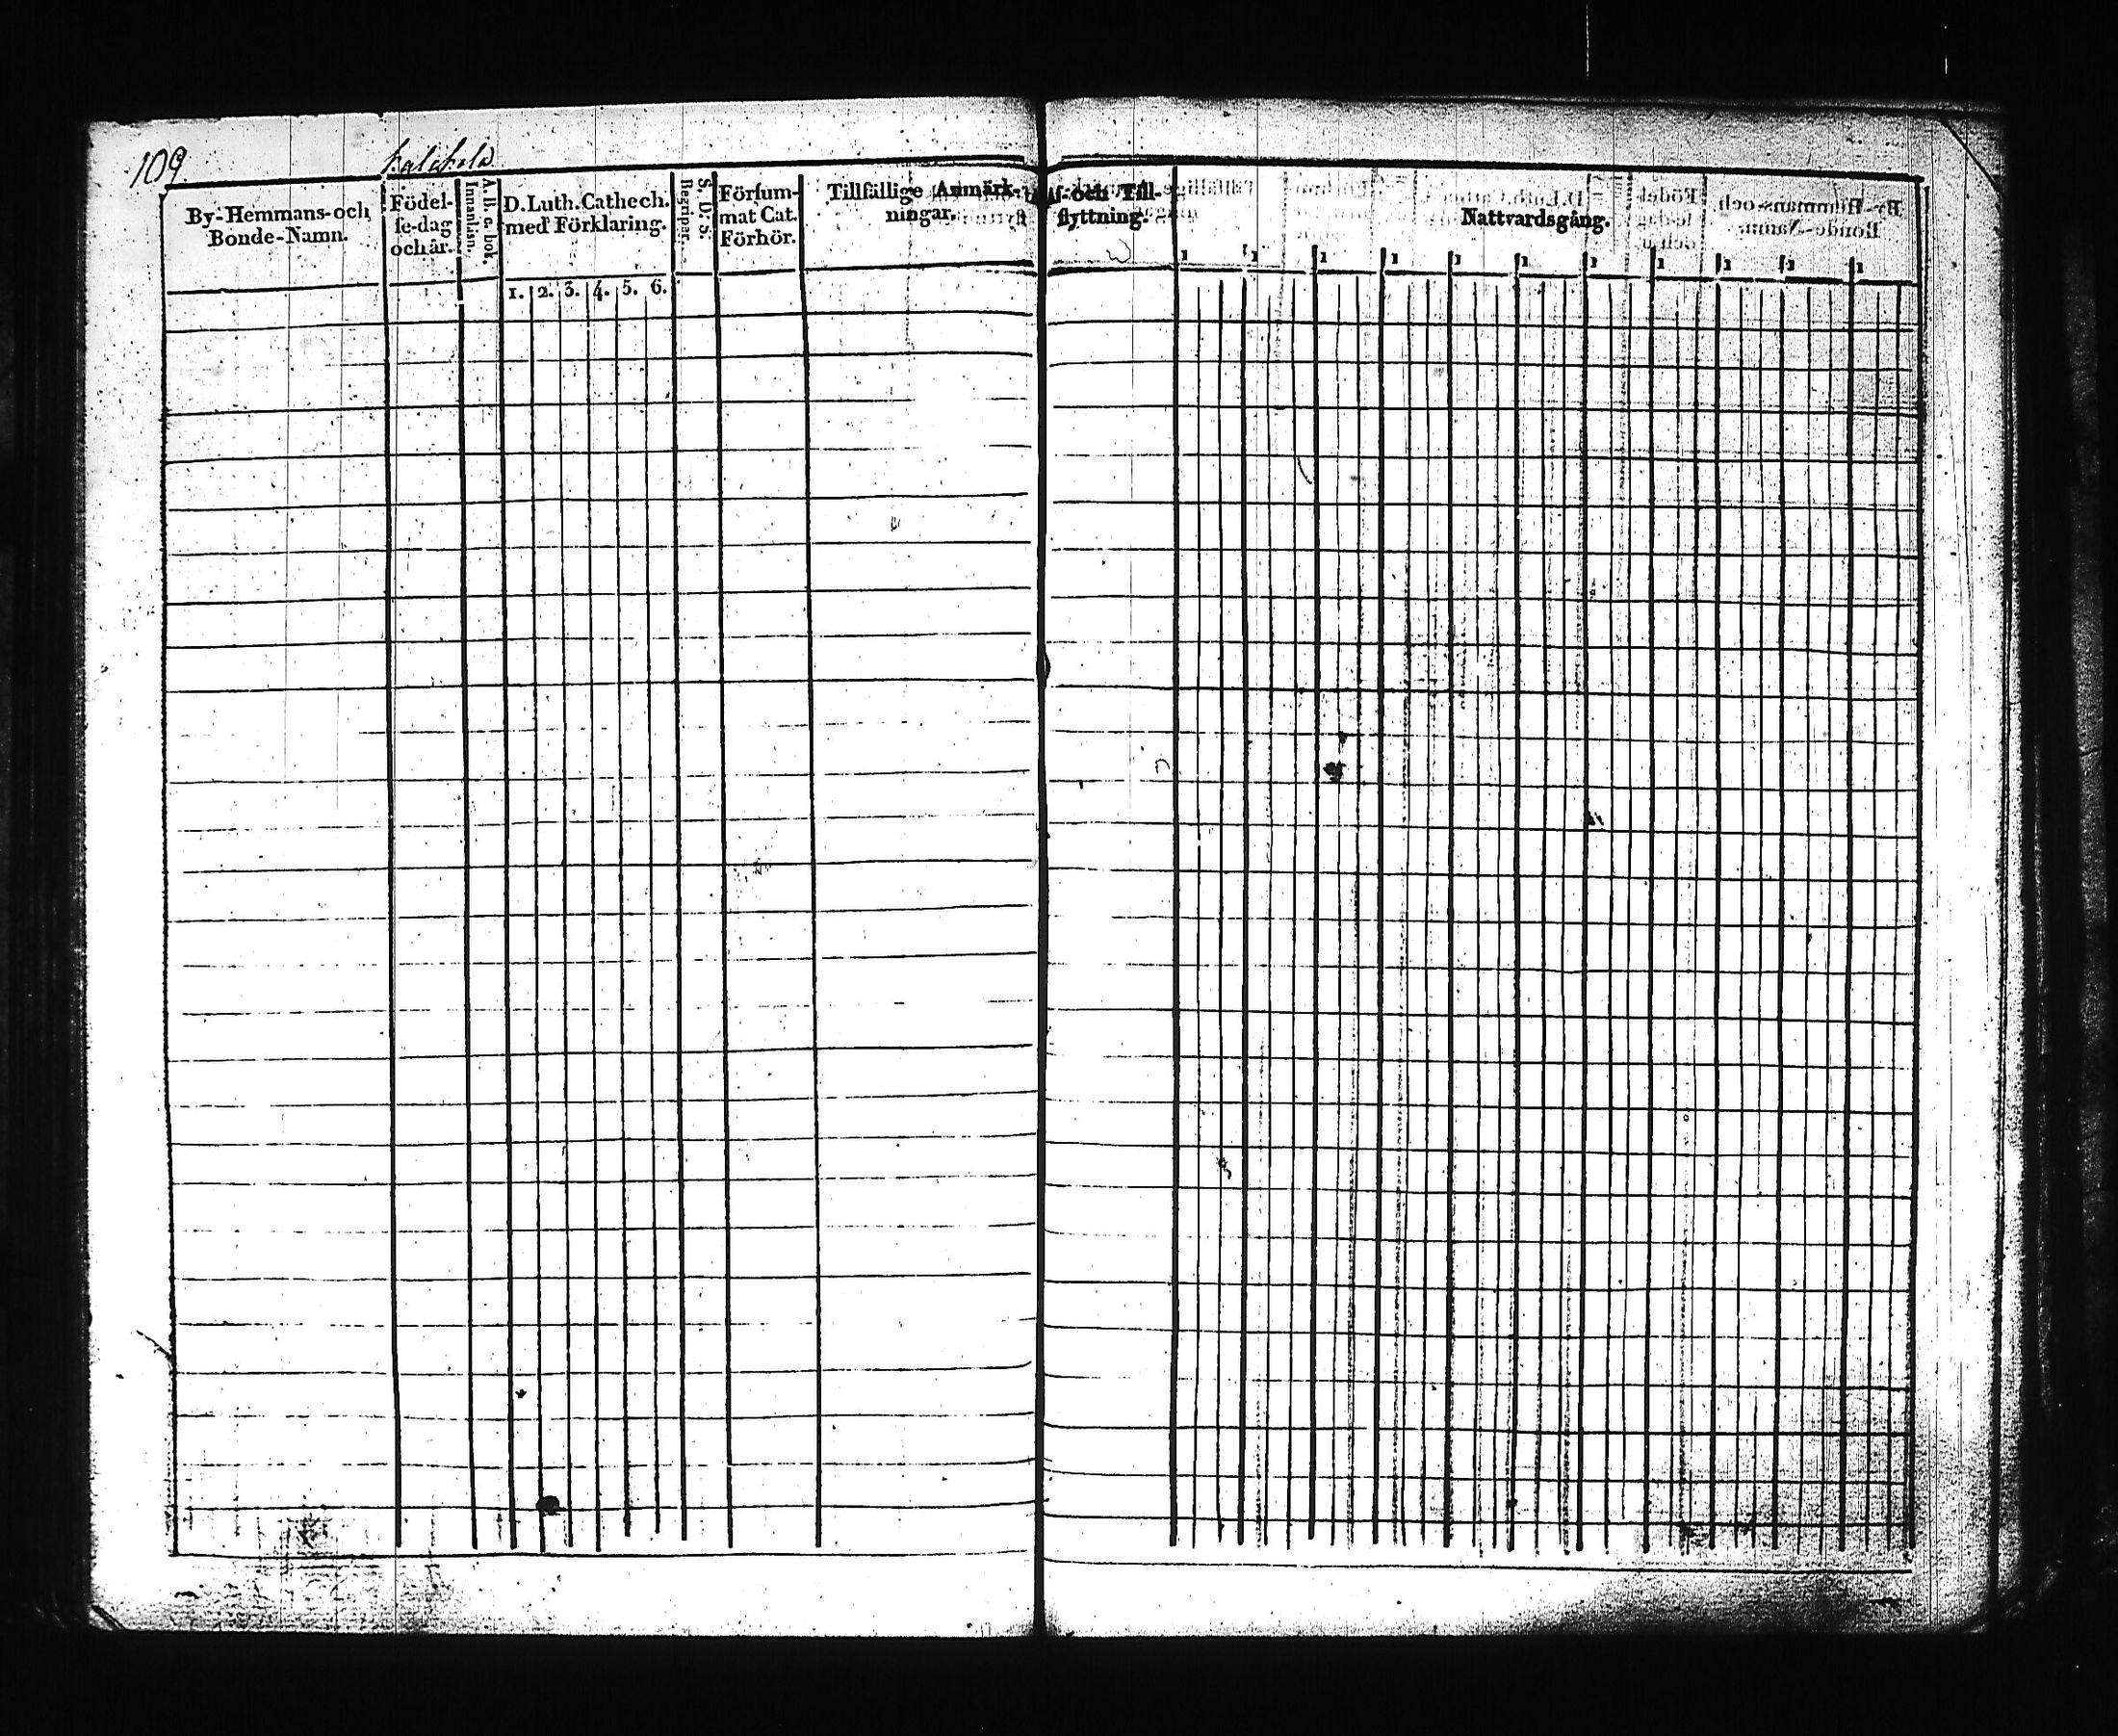 109.
By-Hemmans-och Bonde-Namn.
Födel-
se-dag
och år.
A. B. c. bok.
Innanläs.
D. Luth. Cathech.
med Förklaring.
1. 2. 3. 4. 5. 6.
S. D. S.
Begriper.
Försum-
mat Cat.
Förhör.
Tillfällige Anmärk-
ningar.
Af- och Till-
flyttning.
Nattvardsgång.
1 1 1 1 1 1 1 1 1 1 1